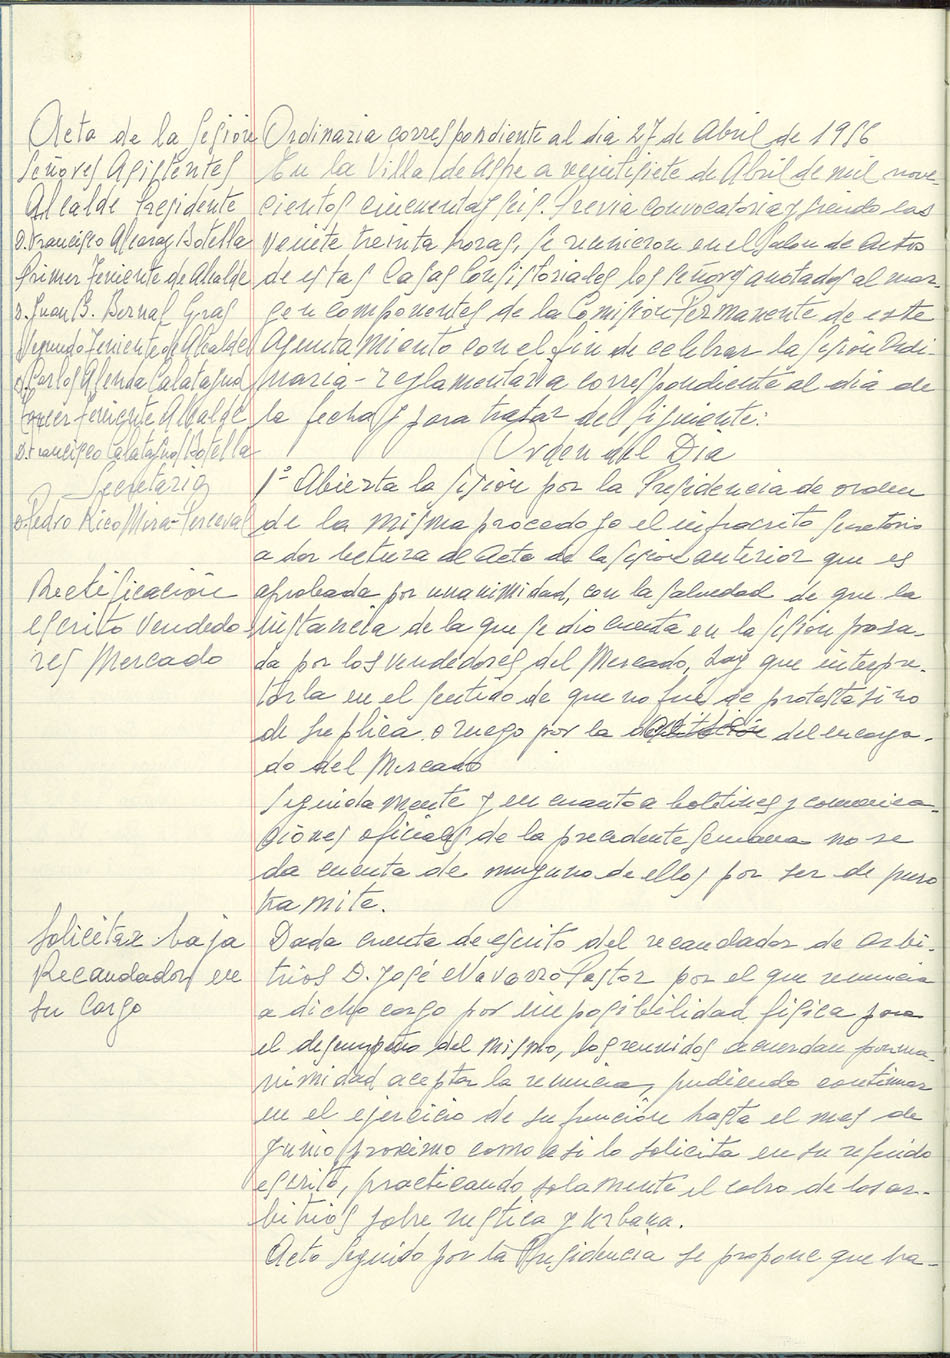 Acta de la Sesión Ordinaria correspondiente al dia 27 de Abril de 1956
Señores Asistentes
Alcalde Presidente
D. Francisco Alcaraz Botella
Primer Teniente de Alcalde
D. Juan B. Bernal Gras
Segundo Teniente de Alcalde
D. Carlos Alenda Calatayud
Tercer Teniente Alcalde
D. Francisco Calatayud Botella
Secretario
D. Pedro Rico Mira-Perceval
En la Villa de Aspe a veintisiete de Abril de mil nove-
cientos cincuenta y seis. Previa convocatoria y siendo las
veinte treinta horas, se reunieron en el Salon de Actos
de estas Casas Consistoriales los señores anotados al mar-
gen componentes de la Comisión Permanente de este
Ayuntamiento con el fin de celebrar la Sesión Ordi-
naria-reglamentaria correspondiente al dia de
la fecha y para tratar del siguiente:
Orden del Dia
1º Abierta la sesión por la Presidencia de orden
de la misma procedo yo el infrascrito Secretario
a dar lectura al Acta de la sesión anterior que es
aprobada por unanimidad, con la salvedad de que la
instancia de la que se dio cuenta en la sesión pasa-
da por los vendedores del Mercado, hay que interpre-
tarla en el sentido de que no fué de protesta sino
de suplica o ruego por la del encarga-
do del Mercado
Rectificación
escrito Vendedo-
res Mercado
Seguidamente y en cuanto a boletines y comunica-
ciones oficiales de la precedente semana no se
da cuenta de ninguno de ellos por ser de puro
tramite.
Solicitar baja
Recaudador en
su cargo
Dada cuenta de escrito del recaudador de arbi-
trios D. José Navarro Pastor por el que renuncia
a dicho cargo por imposibilidad fisica para
el desempeño del mismo, los reunidos acuerdan por una-
nimidad aceptar la renuncia, pudiendo continuar
en el ejercicio de su función hasta el mes de
Junio proximo como asi lo solicita en su referido
escrito, practicando solamente el cobro de los ar-
bitrios sobre rustica y urbana.
Acto seguido por la Presidencia se propone que ha-